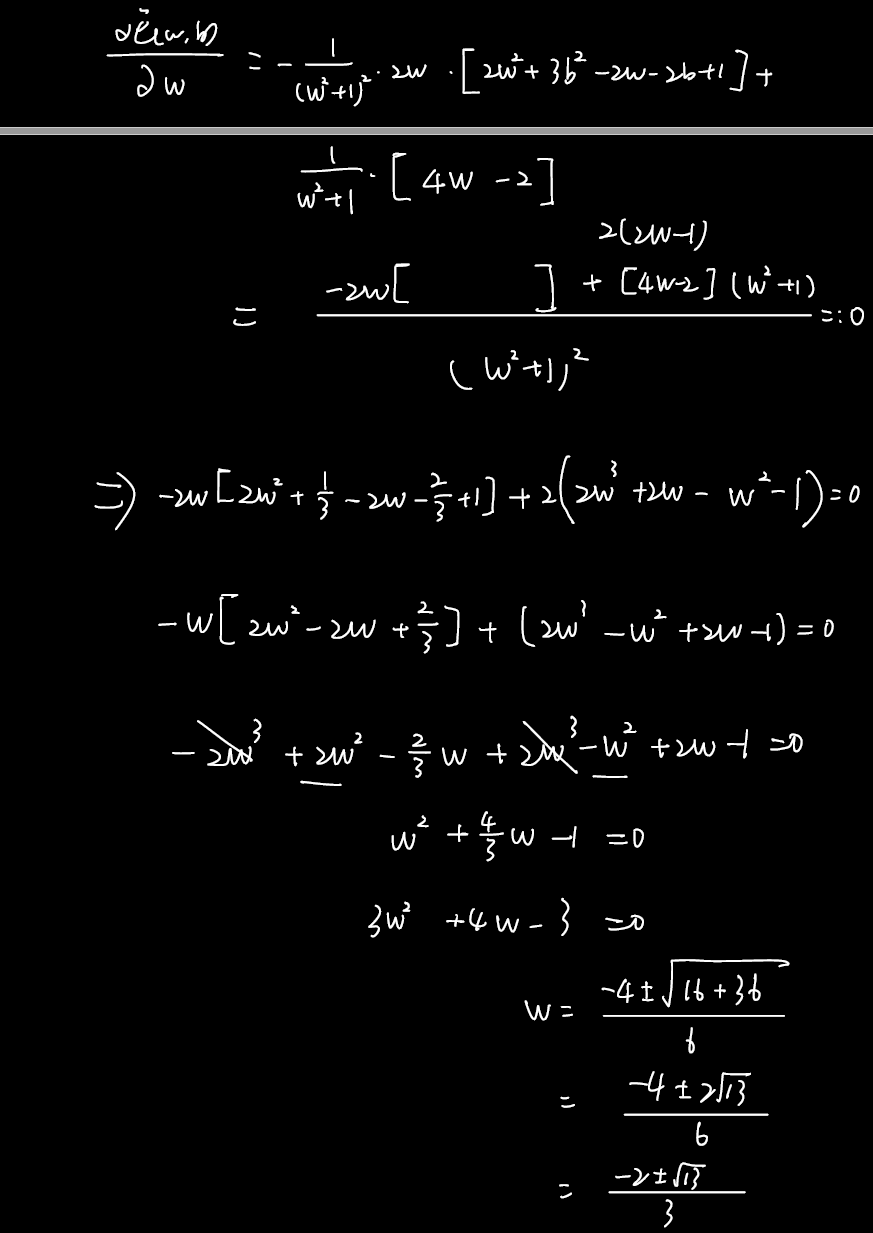 ∂Ẽ(w,b)/∂w = - 1/(w²+1)² · 2w · [2w²+3b²-2w-2b+1] +
1/(w²+1) · [4w -2]
2(2w-1)
= (-2w[ ] + [4w-2](w²+1))/(w²+1)² =: 0
⇒ -2w[2w²+1/3-2w-2/3+1]+2(2w³+2w- w²-1)=0
-w[2w²-2w+2/3]+(2w³-w²+2w-1)=0
-2w³+2w²-2/3w+2w³-w²+2w-1=0
w²+4/3w-1=0
3w²+4w-3=0
w= (-4±√(16+36))/6
= (-4±2√13)/6
= (-2±√13)/3